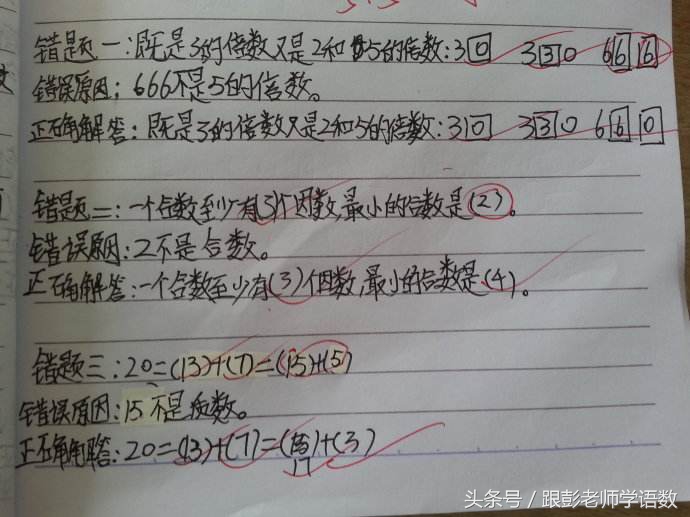 错题一:既是3的倍数又是2和5的倍数:30 330 666
错误原因:666不是5的倍数。
正确解答:既是3的倍数又是2和5的倍数:30 330 660
错题二:一个合数至少有(3)个因数,最小的合数是(2)。
错误原因:2不是合数。
正确解答:一个合数至少有(3)个因数,最小的合数是(4)。
错题三:20=(13)+(7)=(15)+(5)
错误原因:15不是质数。
正确解答:20=(13)+(7)=(17)+(3)
头条号/跟彭老师学语数